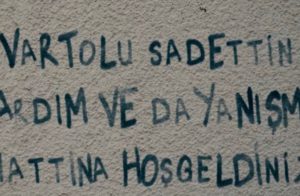 VARTOLU SADETTİN
ARDIM VE DAYANIŞM
HATTINA HOŞGELDİNİZ